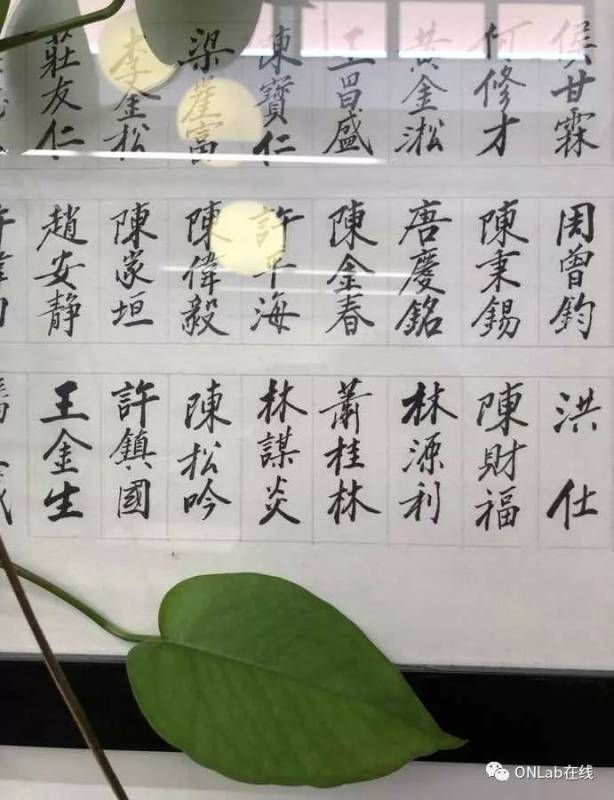 侯甘霖
何修才
黃金淞
王昌盛
陳寶仁
梁崖富
李金松
莊友仁
周曾鈞
陳秉錫
唐慶銘
陳金春
許平海
陳偉毅
陳家垣
趙安静
洪仕
陳財福
林源利
蕭桂林
林謀炎
陳松吟
許鎮國
王金生
ONLab在线